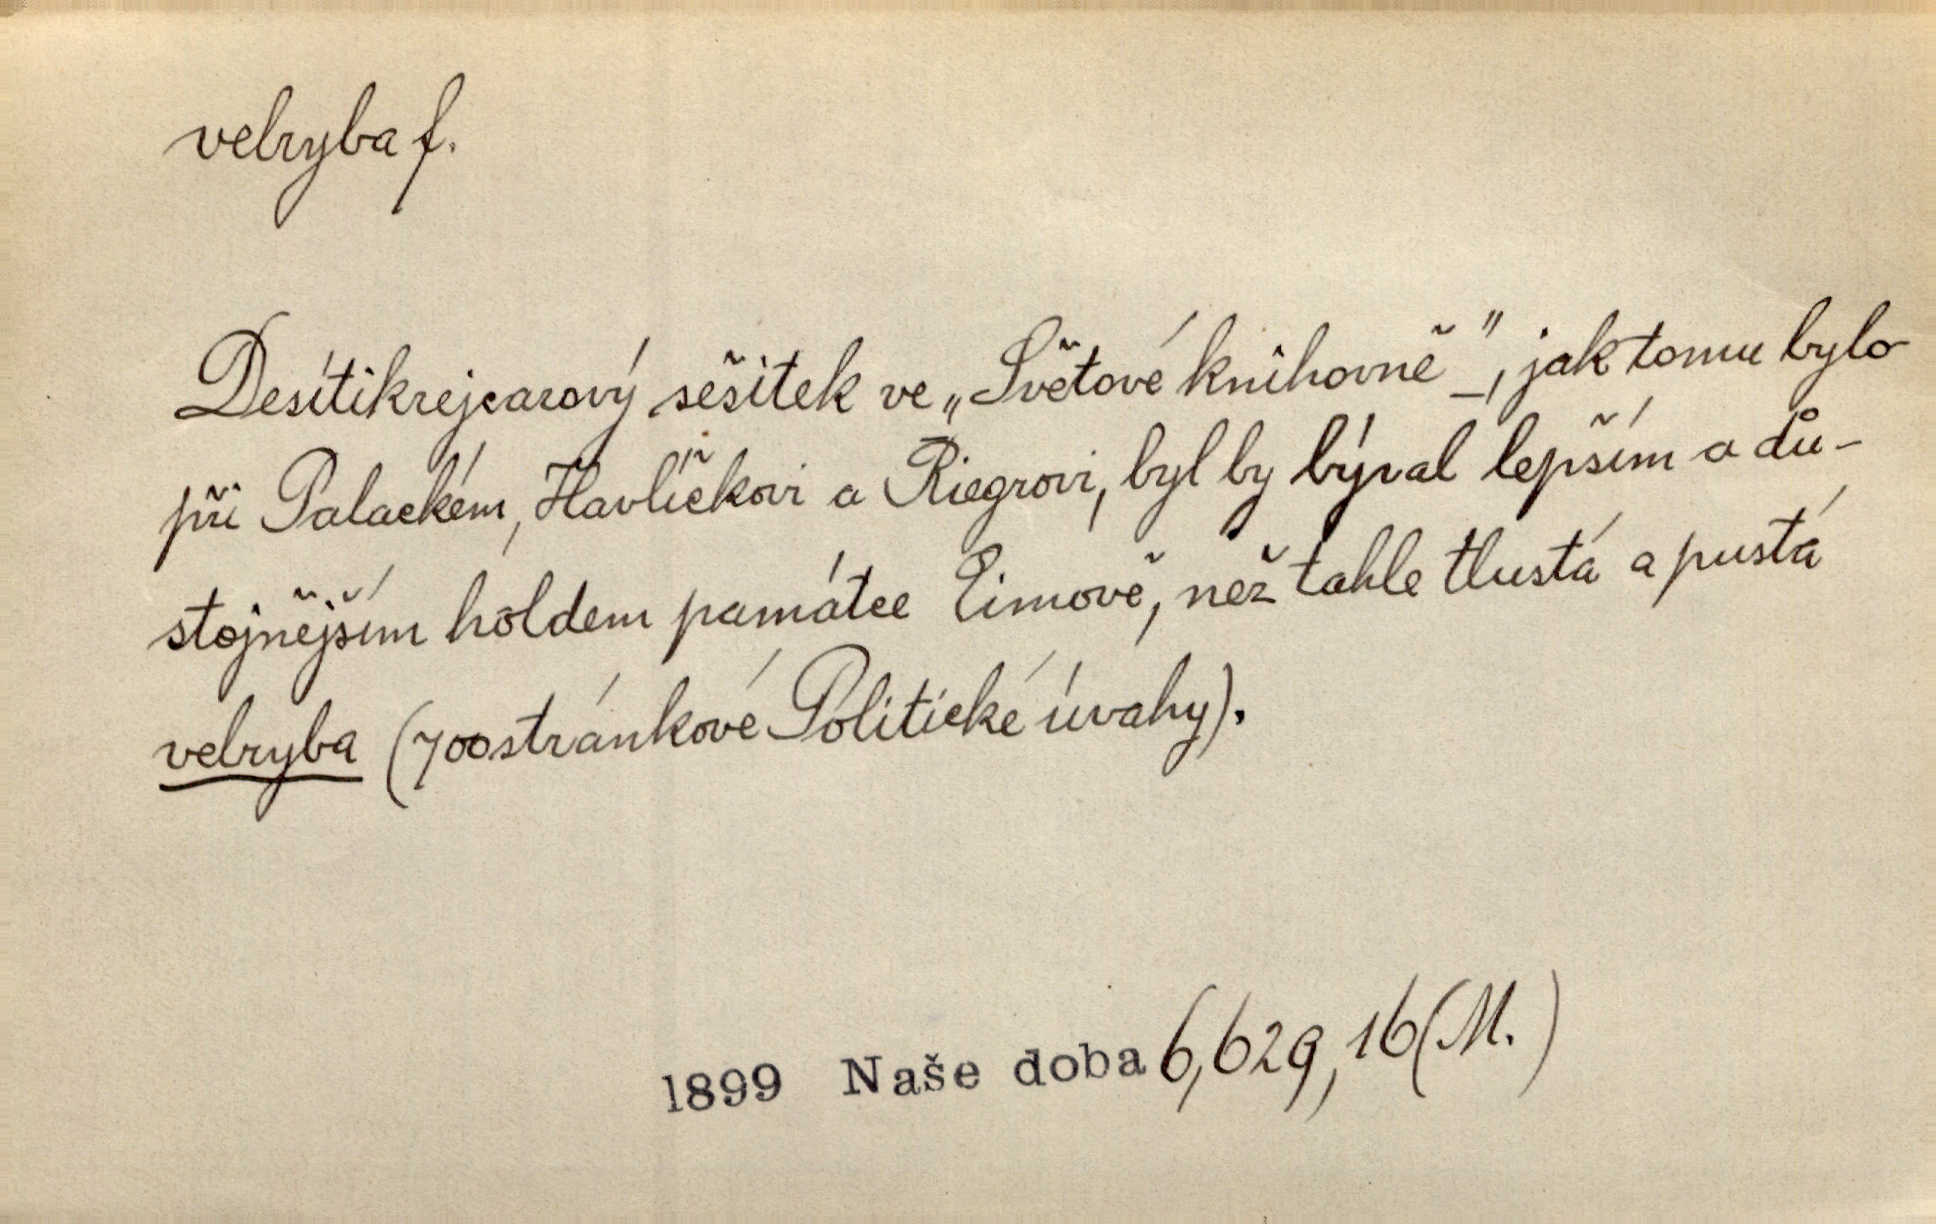 velryba f.
Desítikrejcarový sešitek ve „Světové knihovně“, jak tomu bylo
při Palackém, Havlíčkovi a Riegrovi, byl by býval lepším a dů-
stojnějším holdem památce Eimově, než tahle tlustá a pustá
velryba (700stránkové Politické úvahy).
1899 Naše doba 6,629,16(M.)